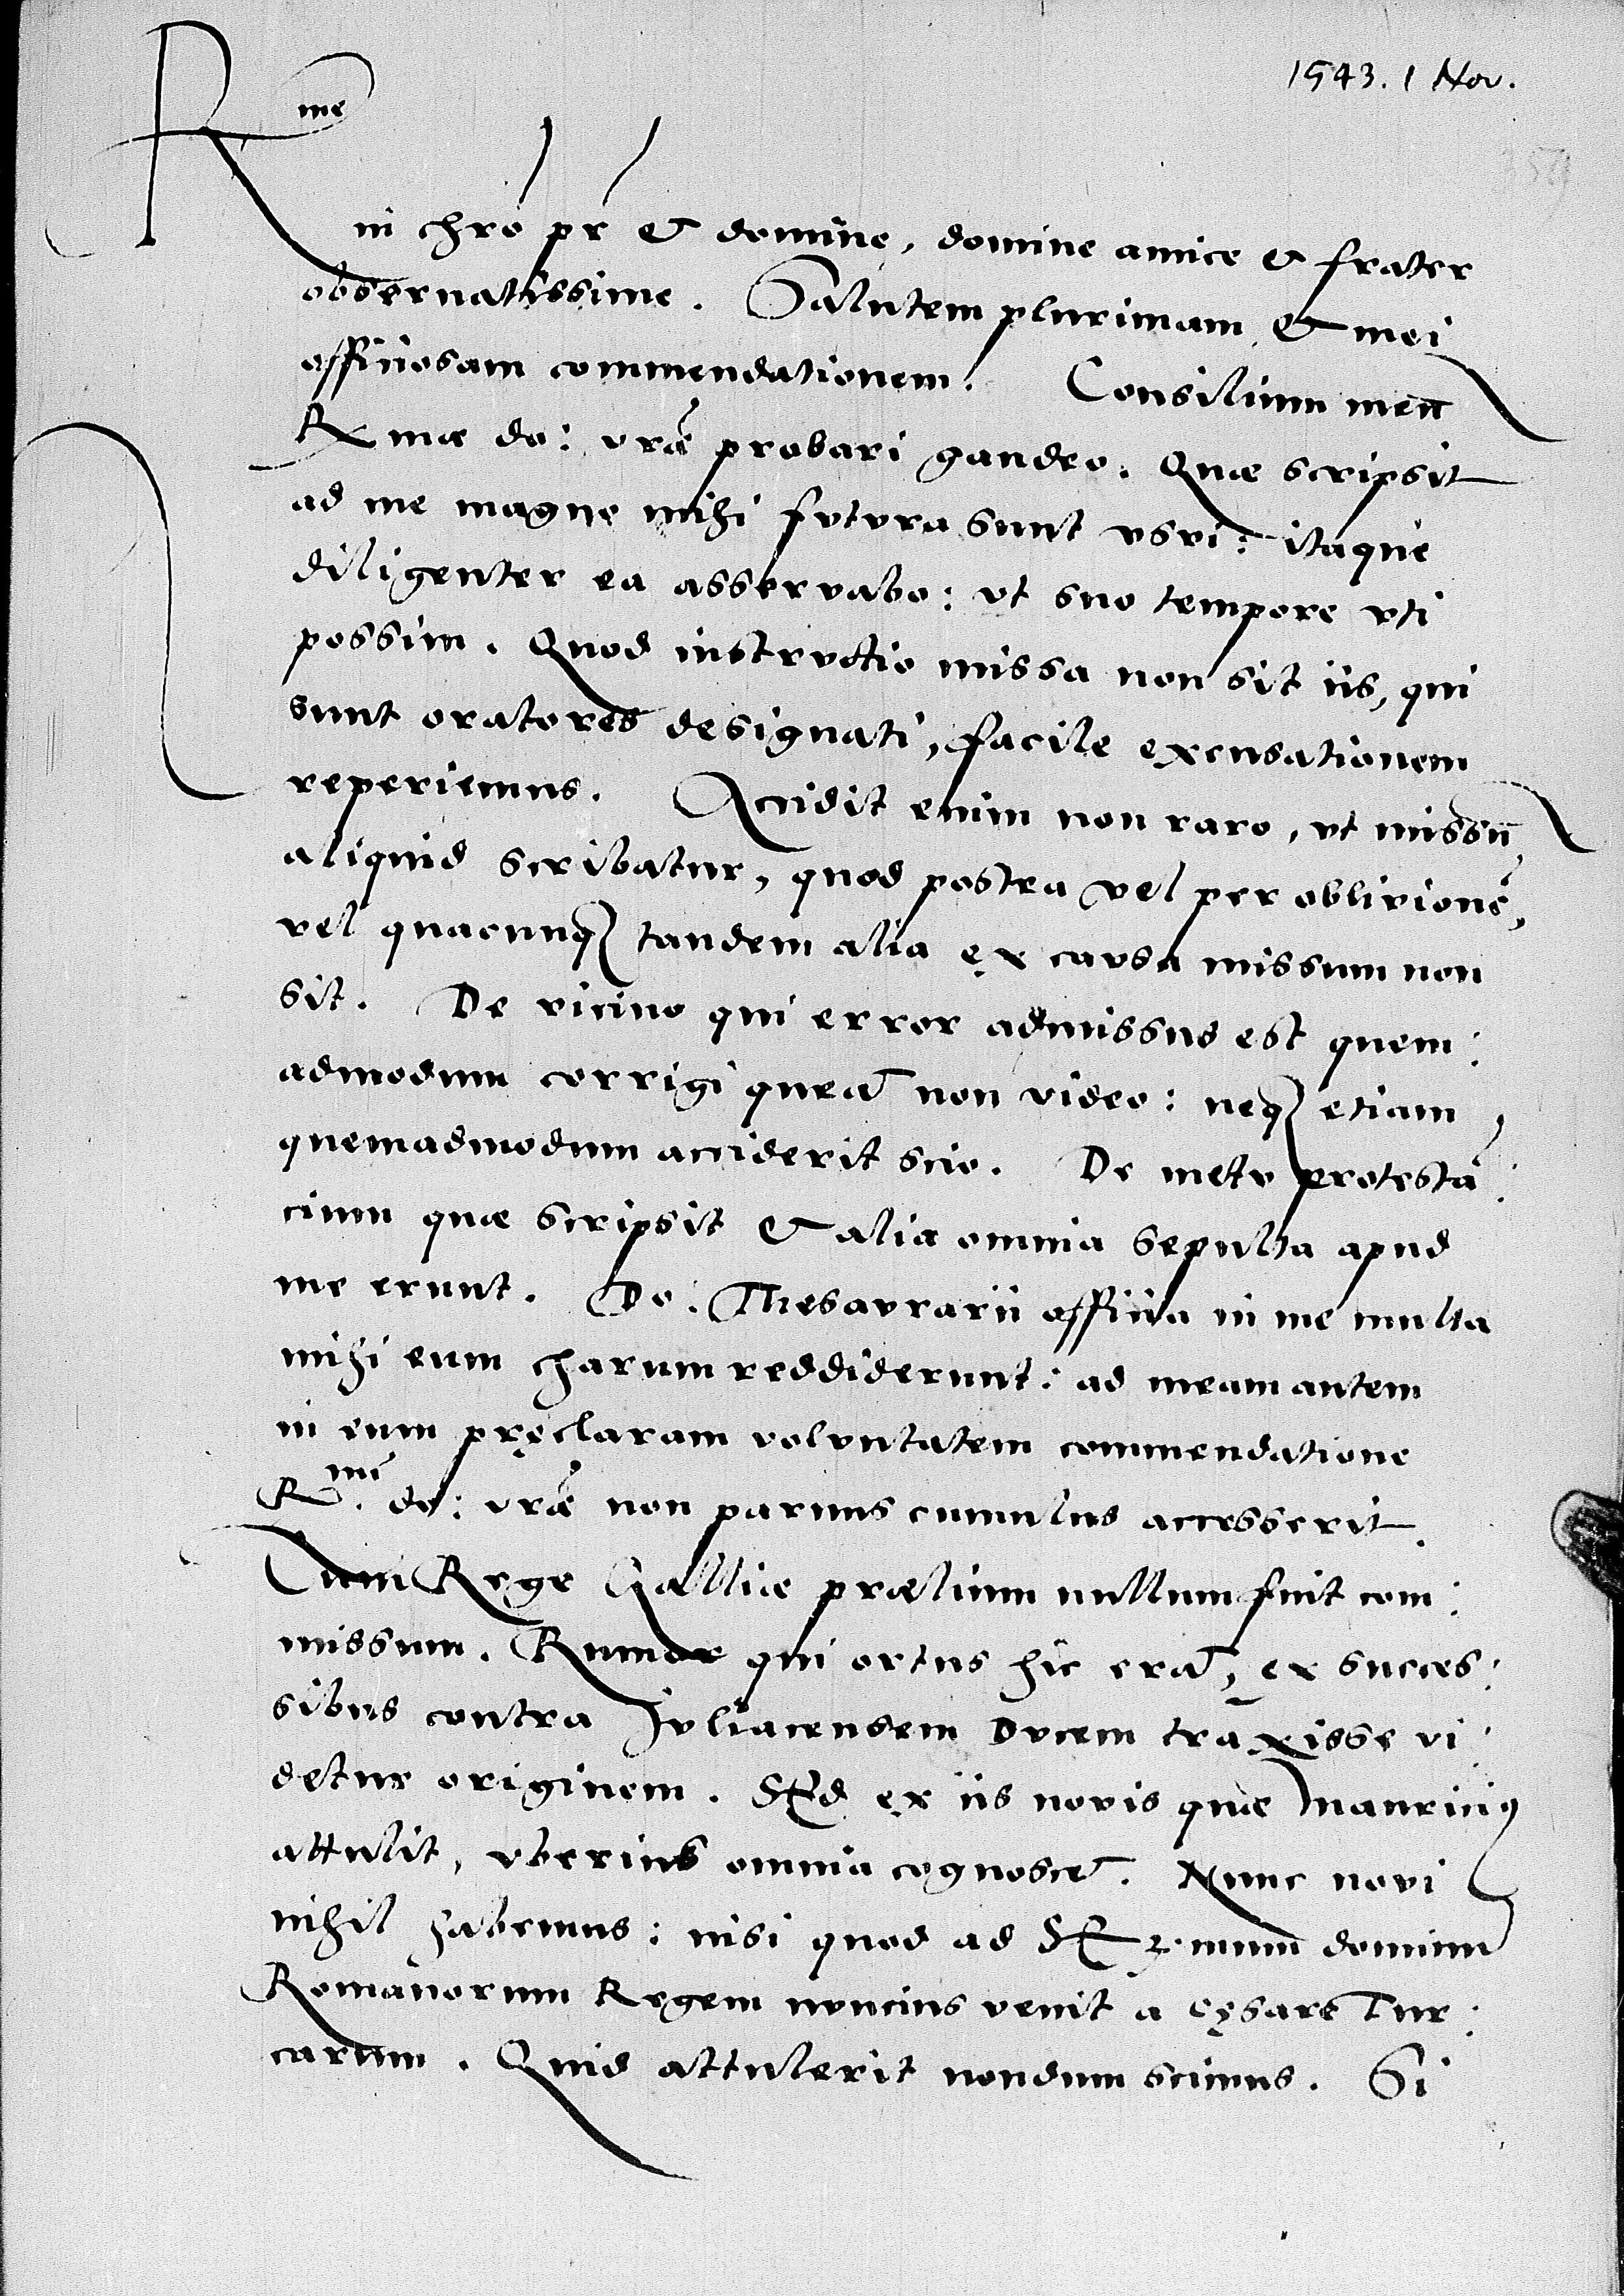 1543. 1 Nov.
359
Rme
in chro pr & domine, domine amice & frater
observatissime. Salutem plurimam & mei
officiosam commendationem. Consilium meū
R mae do: vrae probari gaudeo. Quae scripsit
ad me magne mihi futura sunt usui: itaque
diligenter ea asservabo: ut suo tempore uti
possim. Quod instructio missa non sit iis, qui
sunt oratores designati, facile excusationem
reperiemus. Accidit enim non raro, ut missū
aliquid scribatur, quod postea vel per oblivionē,
vel quacunq tandem alia ex causa missum non
sit. De vicino qui error admissus est quem:
admodum corrigi queat non video: neq etiam,
quemadmodum acciderit scio. De metu protestā:
cium quae scripsit & alia omnia sepulta apud
me erunt. Do. Thesaurarii officia in me multa
mihi eum charum reddiderunt: ad meam autem
in eum pręclaram voluntatem commendatione
R.me do: vrae non parvus cumulus accesserit.
Cum Rege Galliae praelium nullum fuit com:
missum. Rumor qui ortus hic erat, ex succes:
sibus contra Juliacensem Ducem traxisse vi:
detur originem. Sed ex iis novis quae Mauricius
attulit, uberius omnia cognoscet. Nunc novi
nihil habemus: nisi quod ad S R. mum dominū
Romanorum Regem nuncius venit a cęsare Tur:
carum. Quid attulerit nondum scimus. Si